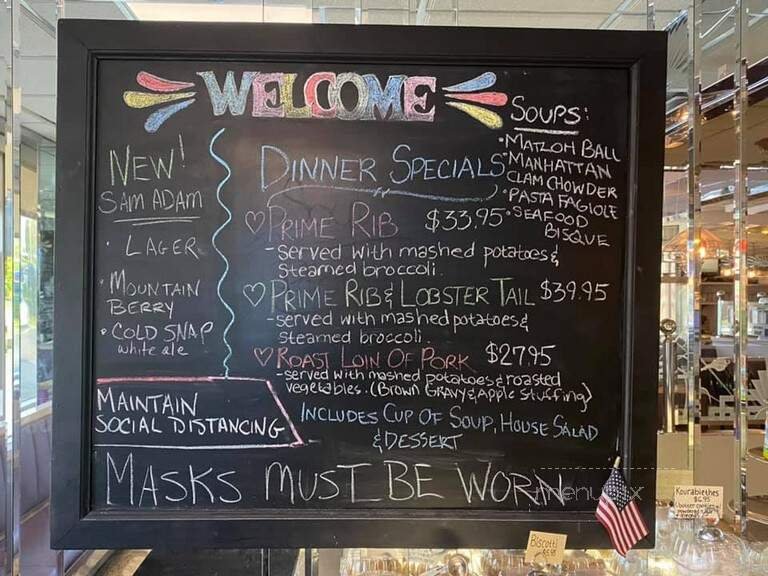 WELCOME
NEW!
SAM ADAM
• LAGER
• MOUNTAIN
BERRY
• COLD SNAP
white ale
MAINTAIN
SOCIAL DISTANCING
DINNER SPECIALS
♡ PRIME RIB $33.95
- served with mashed potatoes &
steamed broccoli.
♡ PRIME RIB & LOBSTER TAIL $39.95
- served with mashed potatoes &
steamed broccoli.
♡ ROAST LOIN OF PORK $27.95
- served with mashed potatoes & roasted
vegetables. (Brown Gravy & Apple Stuffing)
INCLUDES CUP OF SOUP, HOUSE SALAD
& DESSERT
SOUPS:
• MATZOH BALL
• MANHATTAN
CLAM CHOWDER
• PASTA FAGIOLE
• SEAFOOD
BISQUE
MASKS MUST BE WORN
menupix
Biscotti
$5.95
Kourabiethes
$6.95